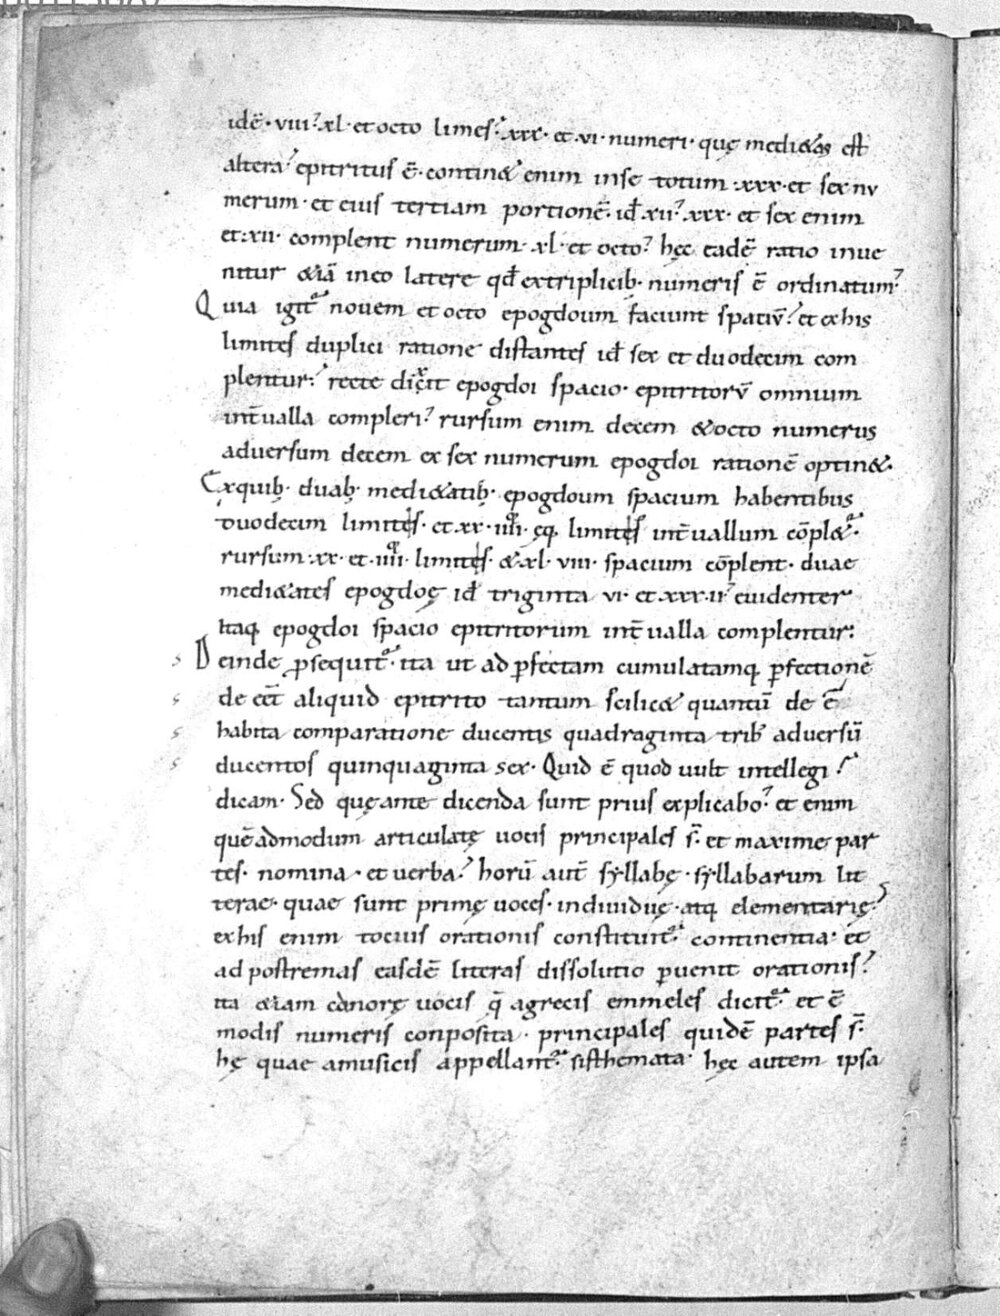 idē· viii? xl· et octo limes? xxx· et vi· numeri· quę medi&as est
altera? epitritus ē· contin& enim inse totum xxx· et sex nu
merum· et eius tertiam portionē· id xii? xxx· et sex enim
et xii· complent numerum· xl· et octo? hęc eadē ratio inue
nitur &iā ineo latere qd extriplicib· numeris ē ordinatum?
Quia igit novem et octo epogdoum faciunt spatiū? et exhis
limites duplici ratione distantes id sex et duodecim com
plentur? recte dicit epogdoi spacio· epitritorū omnium
int̄ualla compleri? rursum enim decem &octo numerus
adversum decem ex sex numerum epogdoi rationē optin&·
Exquib· duab· medi&atib· epogdoum spacium habentibus
duodecim limites· et xx· iiii· eq limites int̄uallum cōpl&·
rursum xx· et iiii· limites· &xl· viii· spacium cōplent· duae
medi&ates epogdoę id triginta vi· et xxx·ii? euidenter
Itaq epogdoi spacio epitritorum int̄ualla complentur:
Deinde psequit· ita ut ad pfectam cumulatamq pfectionē
de eēt aliquid epitrito tantum scilic& quantū de ē
habita comparatione ducentis quadraginta trib adversū
ducentos quinquaginta sex· Quid ē quod uult intellegi?
dicam· Sed quęante dicenda sunt prius explicabo? et enim
quēadmodum articulatę uocis principales s̄· et maxime par
tes· nomina· et uerba? horū aut̄ syllabę· syllabarum lit
terae· quae sunt primę uoces· indiuiduę· atq elementarię?
exhis enim tocius orationis constituit· continentia· et
ad postremas easdē literas dissolutio puenit orationis?
ita &iam canorę uocis q̄ agrecis emmeles dicit· et ē
modis numeris conposita· principales quidē partes s̄·
hę quae amusicis appellant· sisthemata· hęc autem ipsa